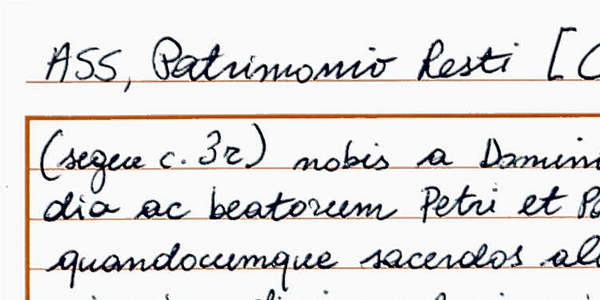 ASS, Patrimonio Resti [C
(segue c. 3r) nobis a Domin
dia ac beatorum Petri et Pa
quandocumque sacerdos al